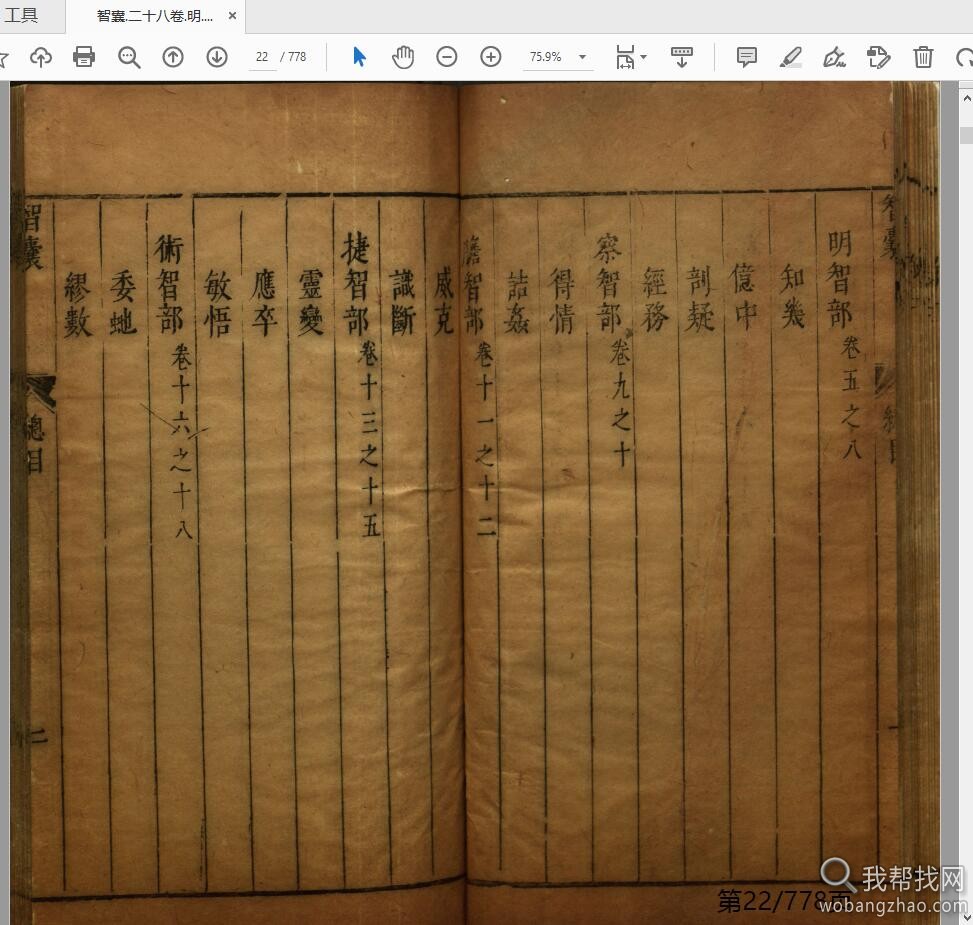 工具
智囊.二十八卷.明....
×
22 / 778
75.9%
智囊
明智部 卷五之八
知幾
億中
剖疑
經務
察智部 卷九之十
得情
詰姦
膽智部 卷十一之十二
威克
識斷
捷智部 卷十三之十五
靈變
應卒
敏悟
術智部 卷十六之十八
委蛇
繆數
智囊
總目
二
第22/778页
我帮找网
wobangzhao.com